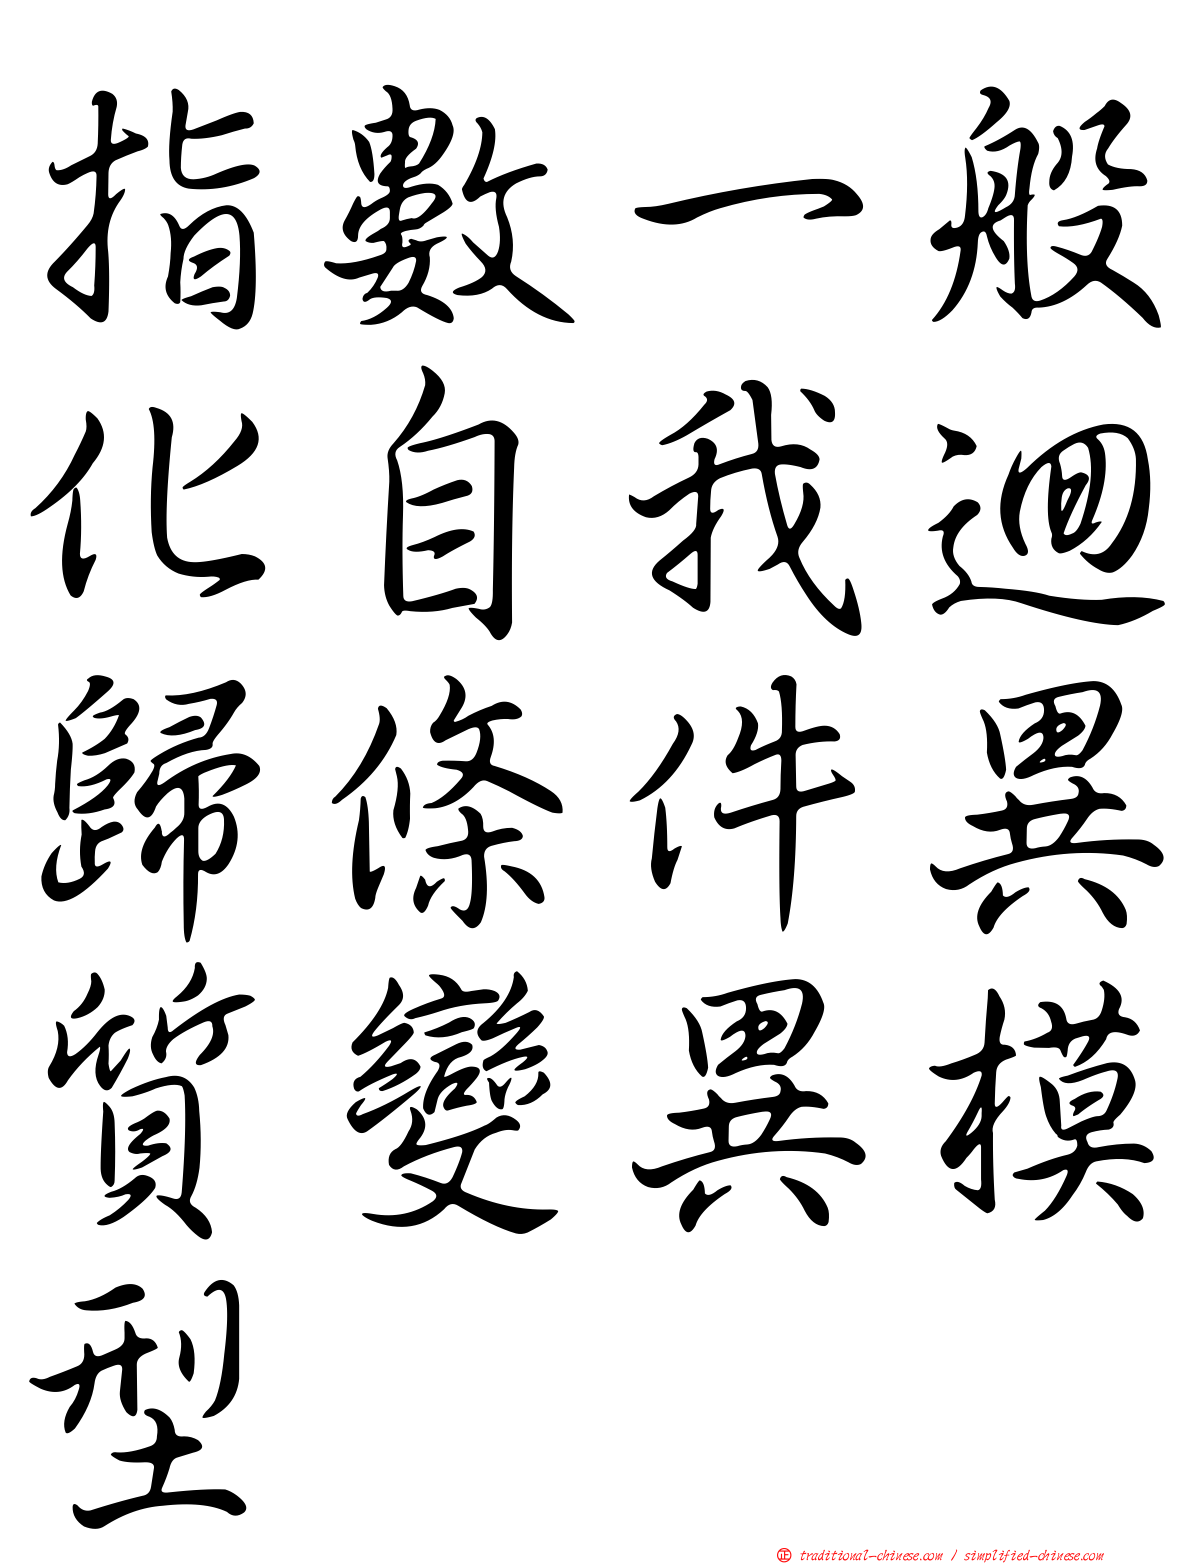 指數一般
化自我迴
歸條件異
質變異模
型
㊣ traditional-chinese.com / simplified-chinese.com